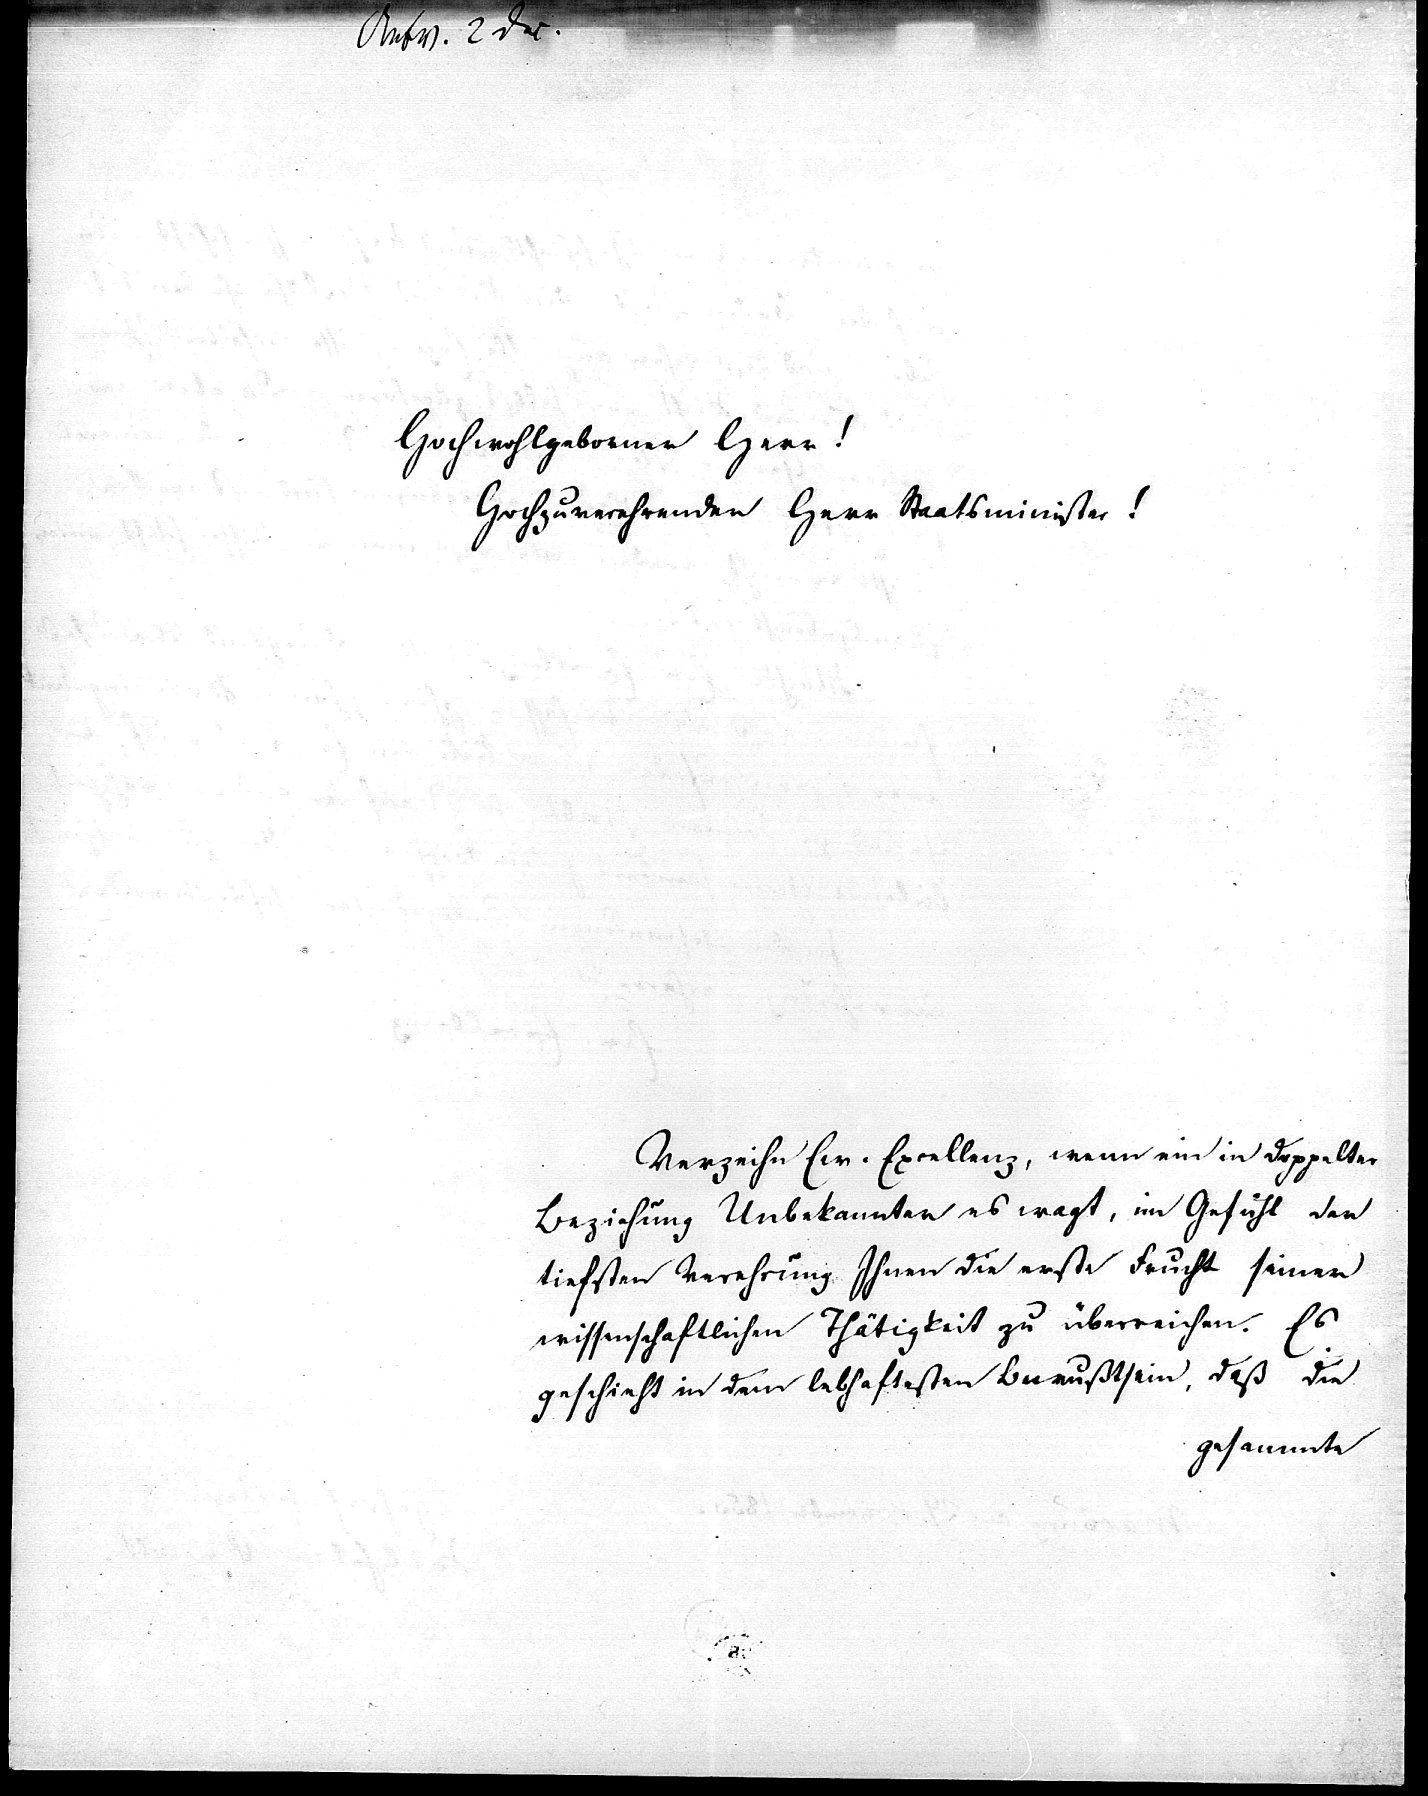 Antw. 2 Dec.
Hochwohlgeborner Herr!
Hochzuverehrender Herr Staatsminister!
Verzeihn Ew. Excellenz, wenn ein in doppelter
Beziehung Unbekannter es wagt, im Gefühl der
tiefsten Verehrung Ihnen die erste Frucht seiner
wissenschaftlichen Thätigkeit zu überreichen. Es
geschieht in dem lebhaftesten Bewußtsein, daß die
gesammte